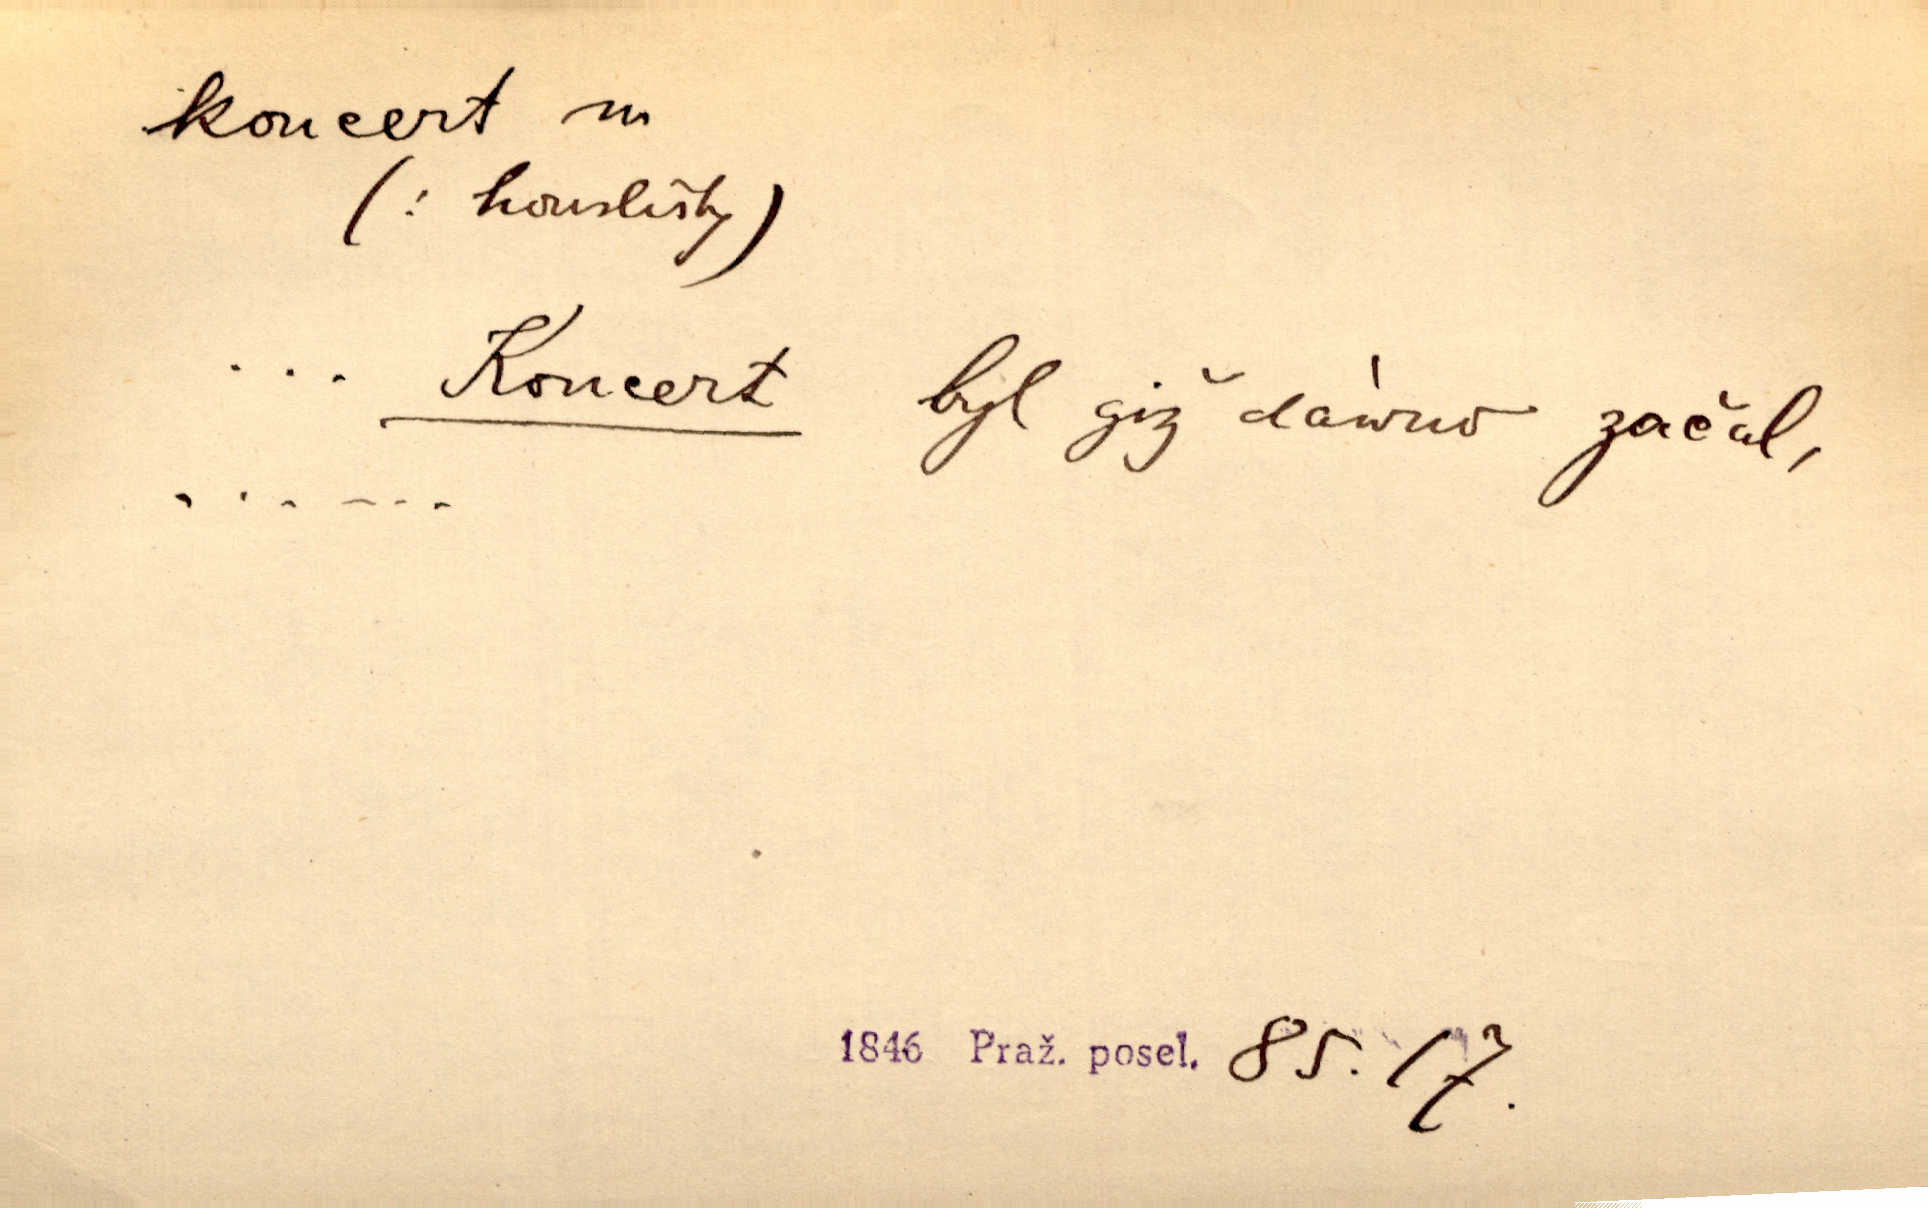 koncert m
(: houslisty)
... Koncert byl giž dáwno začal,
......
1846 Praž. posel. 85. 17.